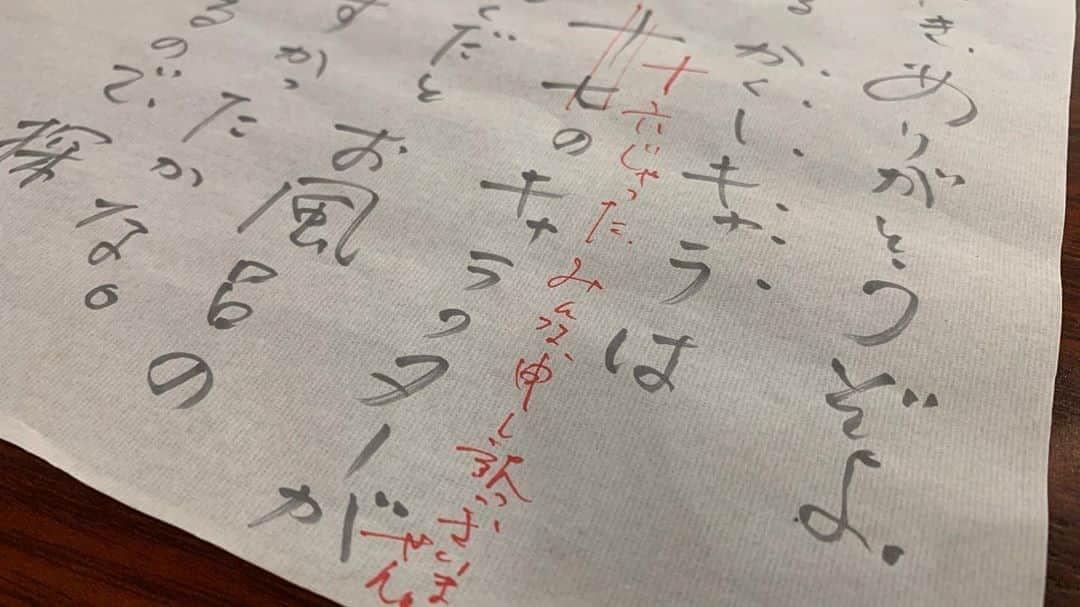 き、ありがとうぞよ。
るかくしキャラは
十七のキャラクターが
十六じゃった。みんな申し訳ございま
せん。
だとお風呂の
すかったかな。
るので、探